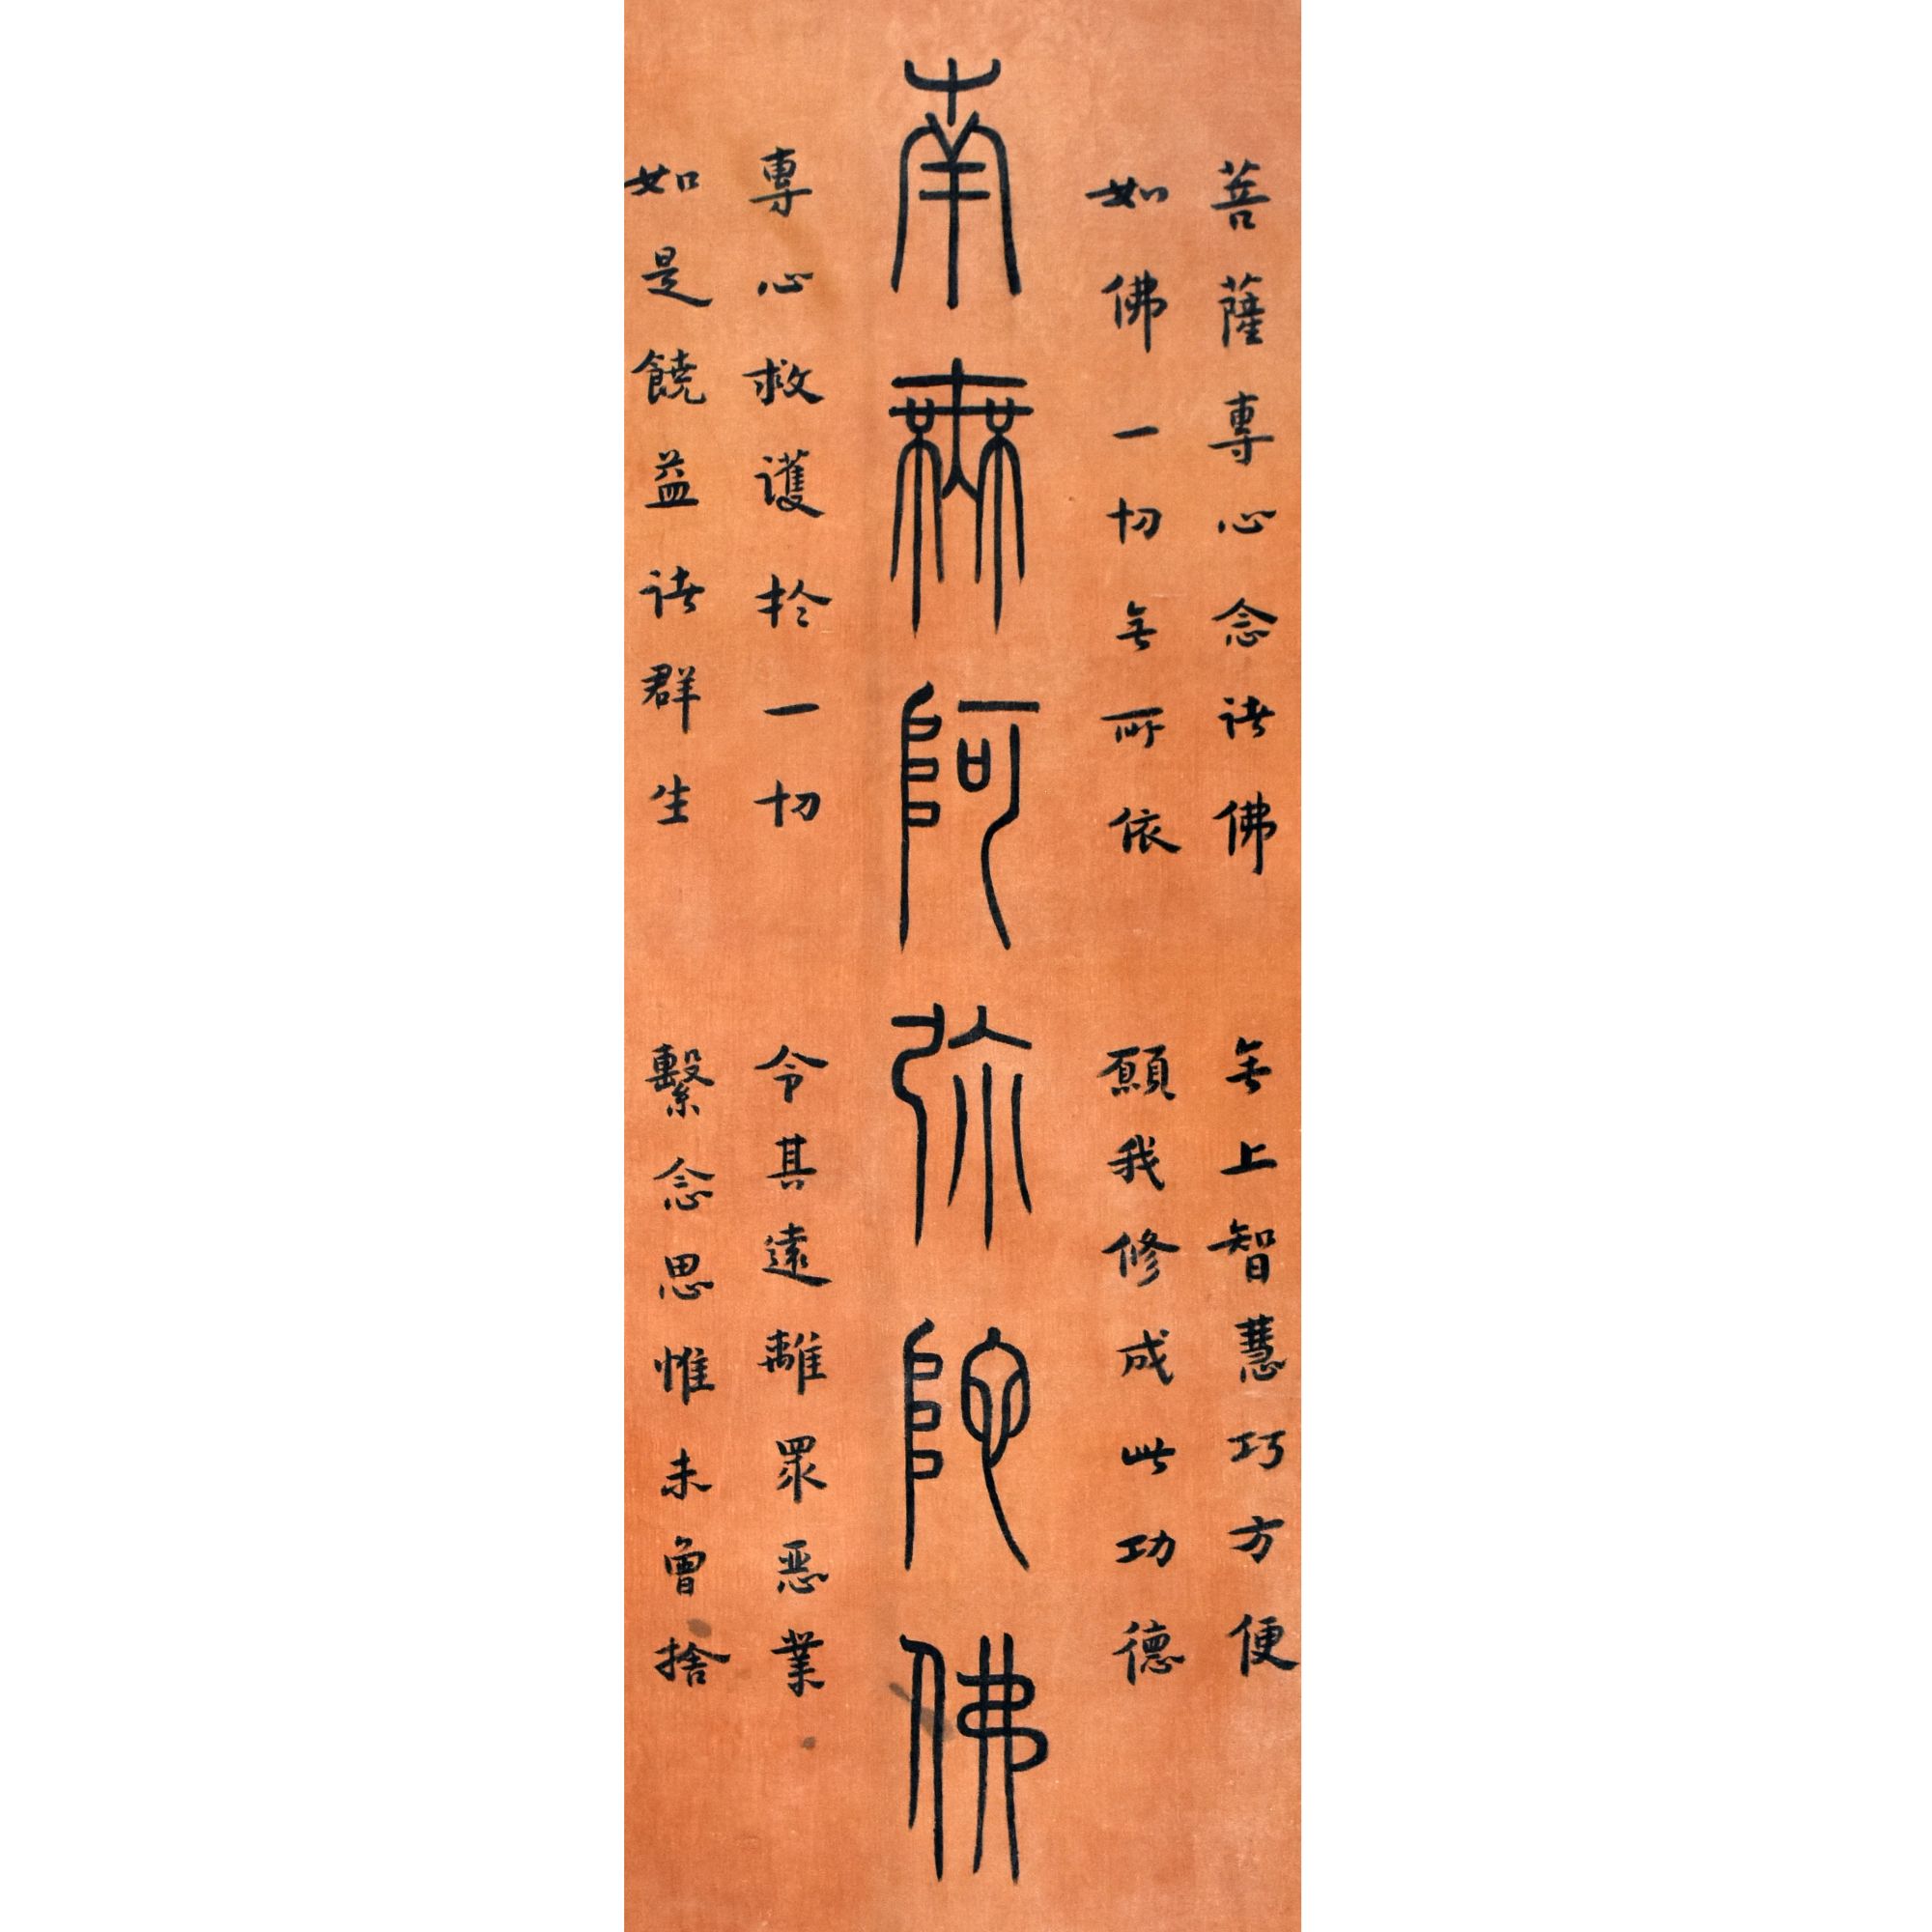 菩薩專心念諸佛 無上智慧巧方便
如佛一切無所依 願我修成此功德
南無阿弥陀佛
專心救護於一切 令其遠離眾惡業
如是饒益諸群生 繫念思惟未曾捨